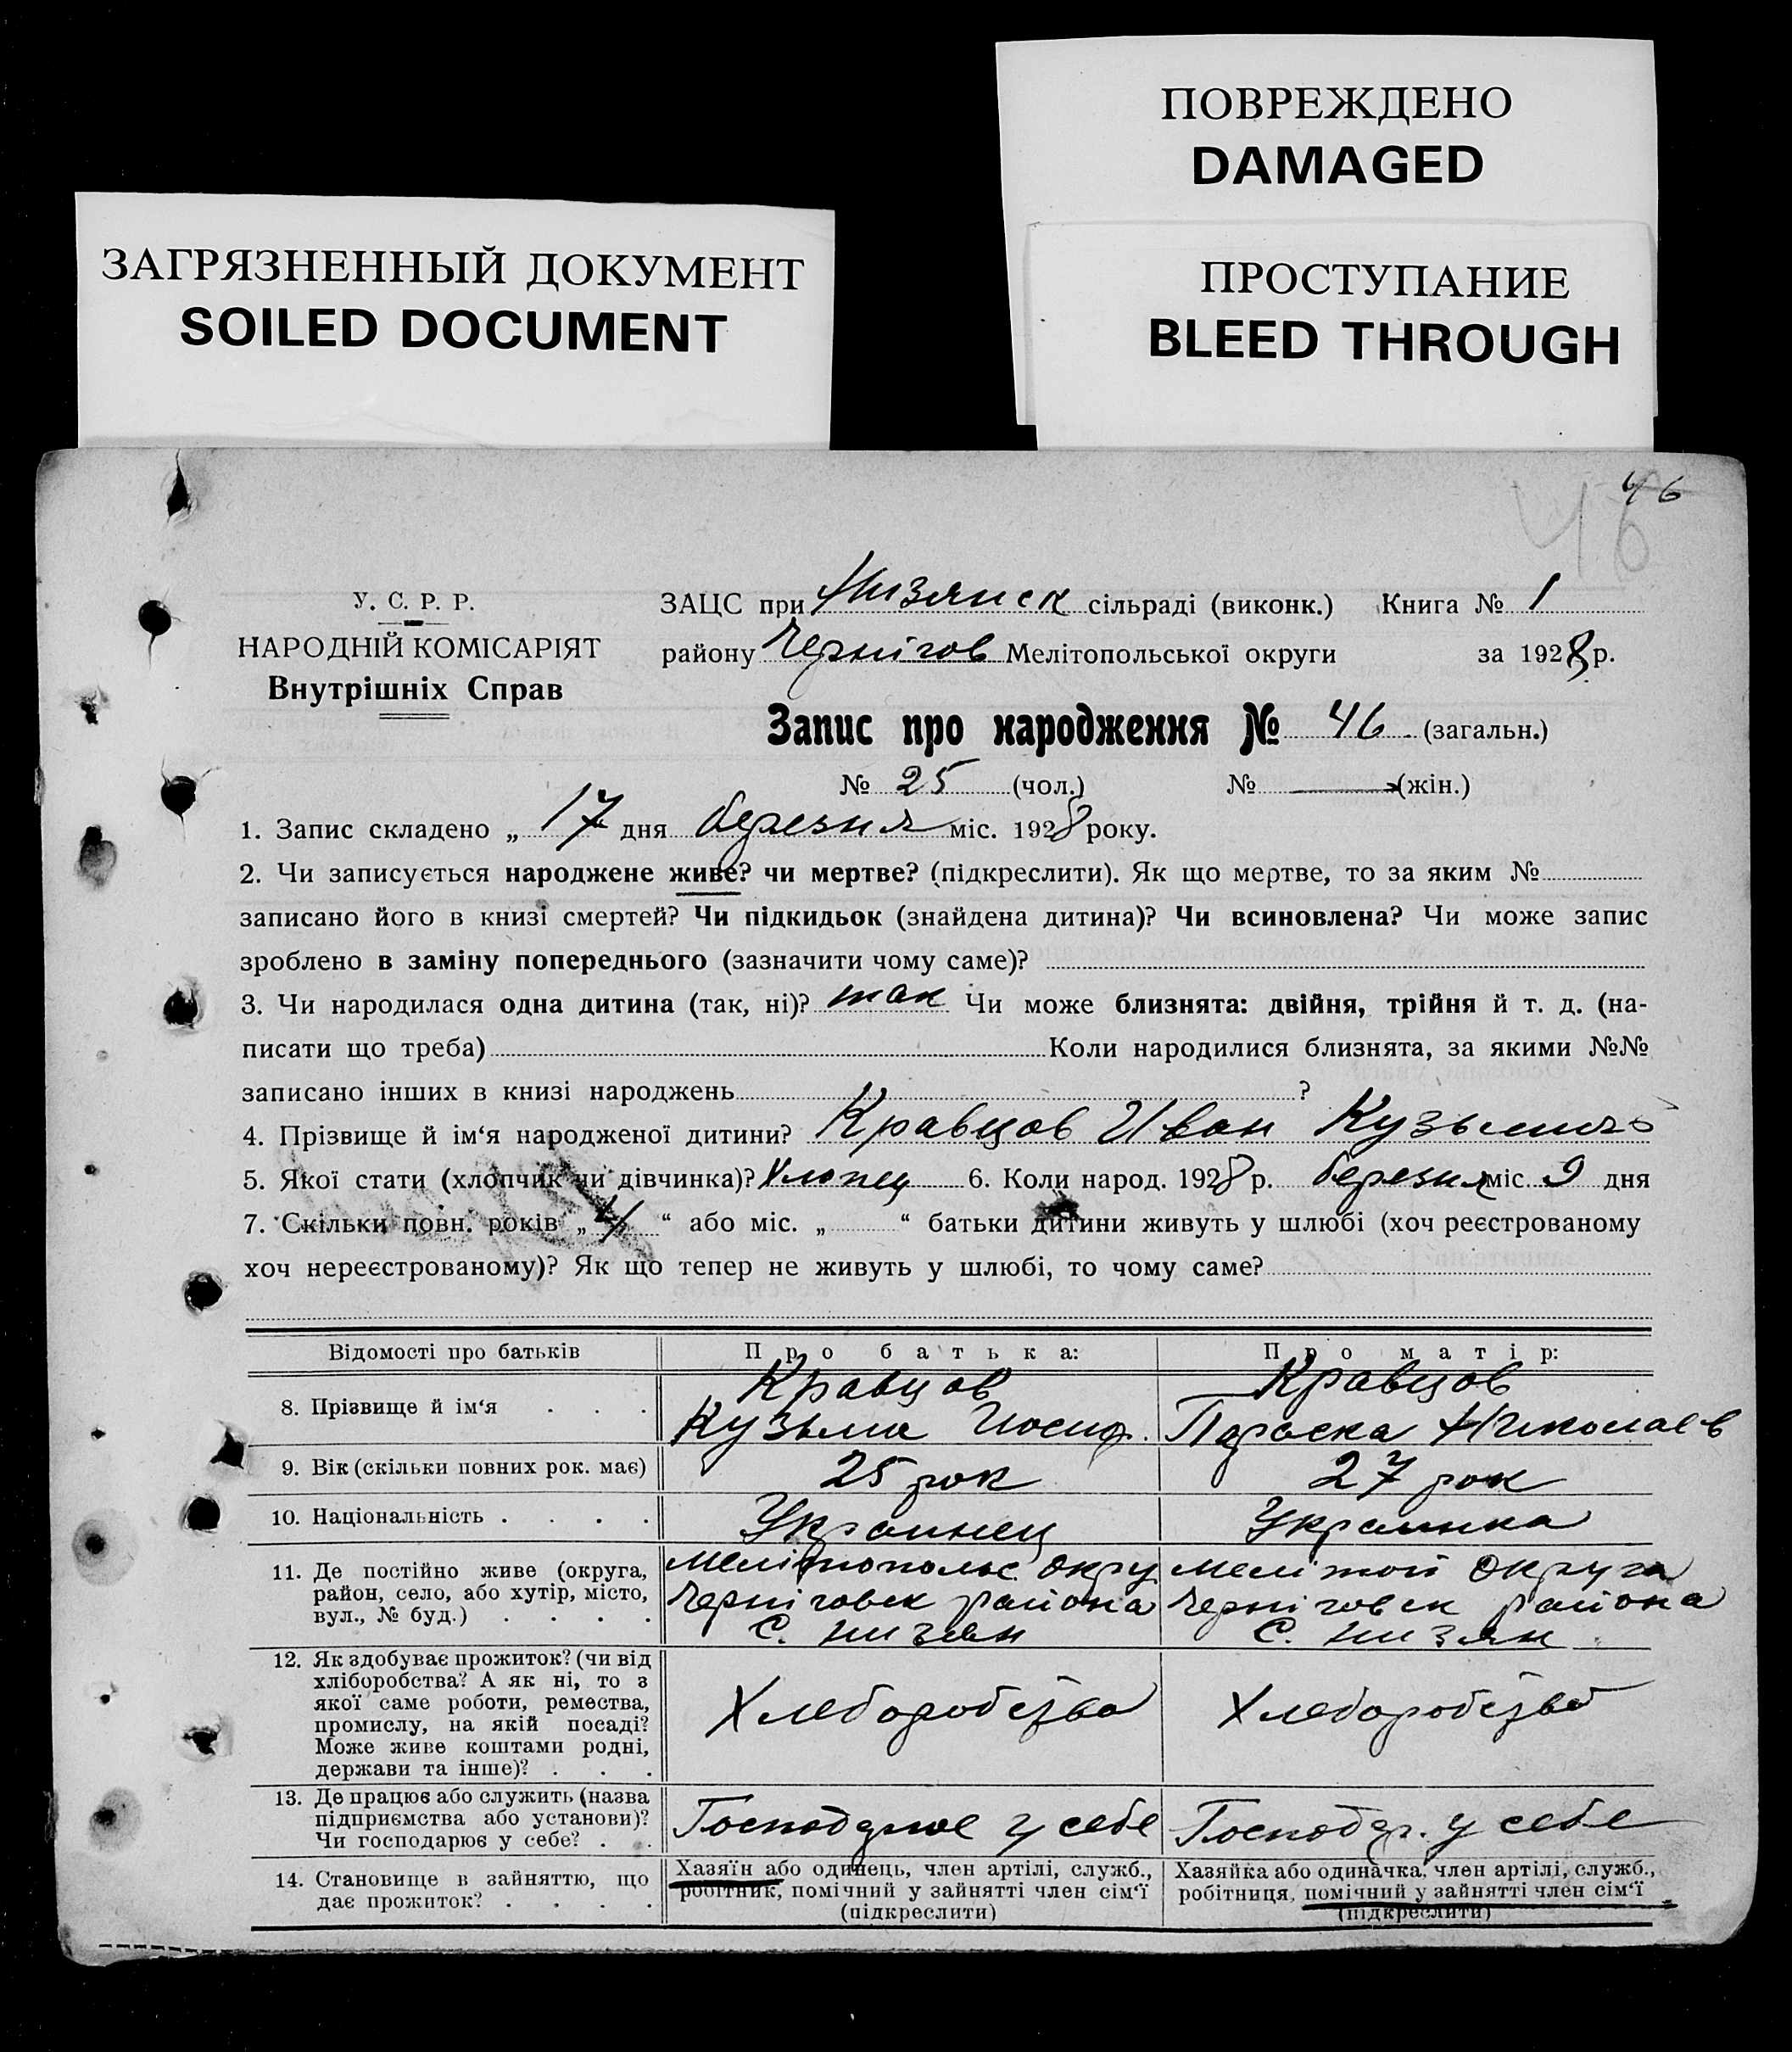 ПОВРЕЖДЕНО
DAMAGED
ЗАГРЯЗНЕННЫЙ ДОКУМЕНТ
SOILED DOCUMENT
ПРОСТУПАНИЕ
BLEED THROUGH
46
46
У. С. Р. Р.
НАРОДНІЙ КОМІСАРІЯТ
Внутрішніх Справ
ЗАЦС при Низянск сільраді (виконк.) Книга № 1
району Чернігов Мелітопольської округи за 1928 р.
Запис про народження № 46 (загальн.)
№ 25 (чол.) № — (жін.)
1. Запис складено „ 17 дня березня міс. 1928 року.
2. Чи записується народжене живе? чи мертве? (підкреслити). Як що мертве, то за яким №
записано його в книзі смертей? Чи підкидьок (знайдена дитина)? Чи всиновлена? Чи може запис
зроблено в заміну попереднього (зазначити чому саме)?
3. Чи народилася одна дитина (так, ні)? так Чи може близнята: двійня, трійня й т. д. (на-
писати що треба) Коли народилися близнята, за якими №№
записано інших в книзі народжень ?
4. Прізвище й ім‘я народженої дитини? Кравцов Иван Кузьмичь
5. Якої стати (хлопчик чи дівчинка)? Хлопец 6. Коли народ. 1928 р. березня міс. 9 дня
7. Скільки повн. років „ 4 “ або міс. „ “ батьки дитини живуть у шлюбі (хоч реєстрованому
хоч нереєстрованому)? Як що тепер не живуть у шлюбі, то чому саме?
Відомості про батьків Про батька: Про матір:
8. Прізвище й ім‘я . . . Кравцов Кравцов
Кузьма Иосиф. Параска Николаев
9. Вік (скільки повних рок. має) 25 рок 27 рок
10. Національність . . . . Украинец Украинка
11. Де постійно живе (округа, Мелітопольс окру Меліпой округа
район, село, або хутір, місто, Черніговск района Черніговск района
вул., № буд.) . . . . С. Низян С. Низян
12. Як здобуває прожиток? (чи від
хліборобства? А як ні, то з
якої саме роботи, ремества, Хлеборобство Хлеборобство
промислу, на якій посаді?
Може живе коштами родні,
держави та інше)? . . .
13. Де працює або служить (назва
підприємства або установи)? Господарює у себе Господар. у себе
Чи господарює у себе? . .
14. Становище в зайняттю, що Хазяїн або одинець, член артілі, служб., Хазяйка або одиначка, член артілі, служб.,
дає прожиток? . . . . робітник, помічний у зайнятті член сім‘ї робітниця, помічний у зайнятті член сім‘ї
(підкреслити) (підкреслити)